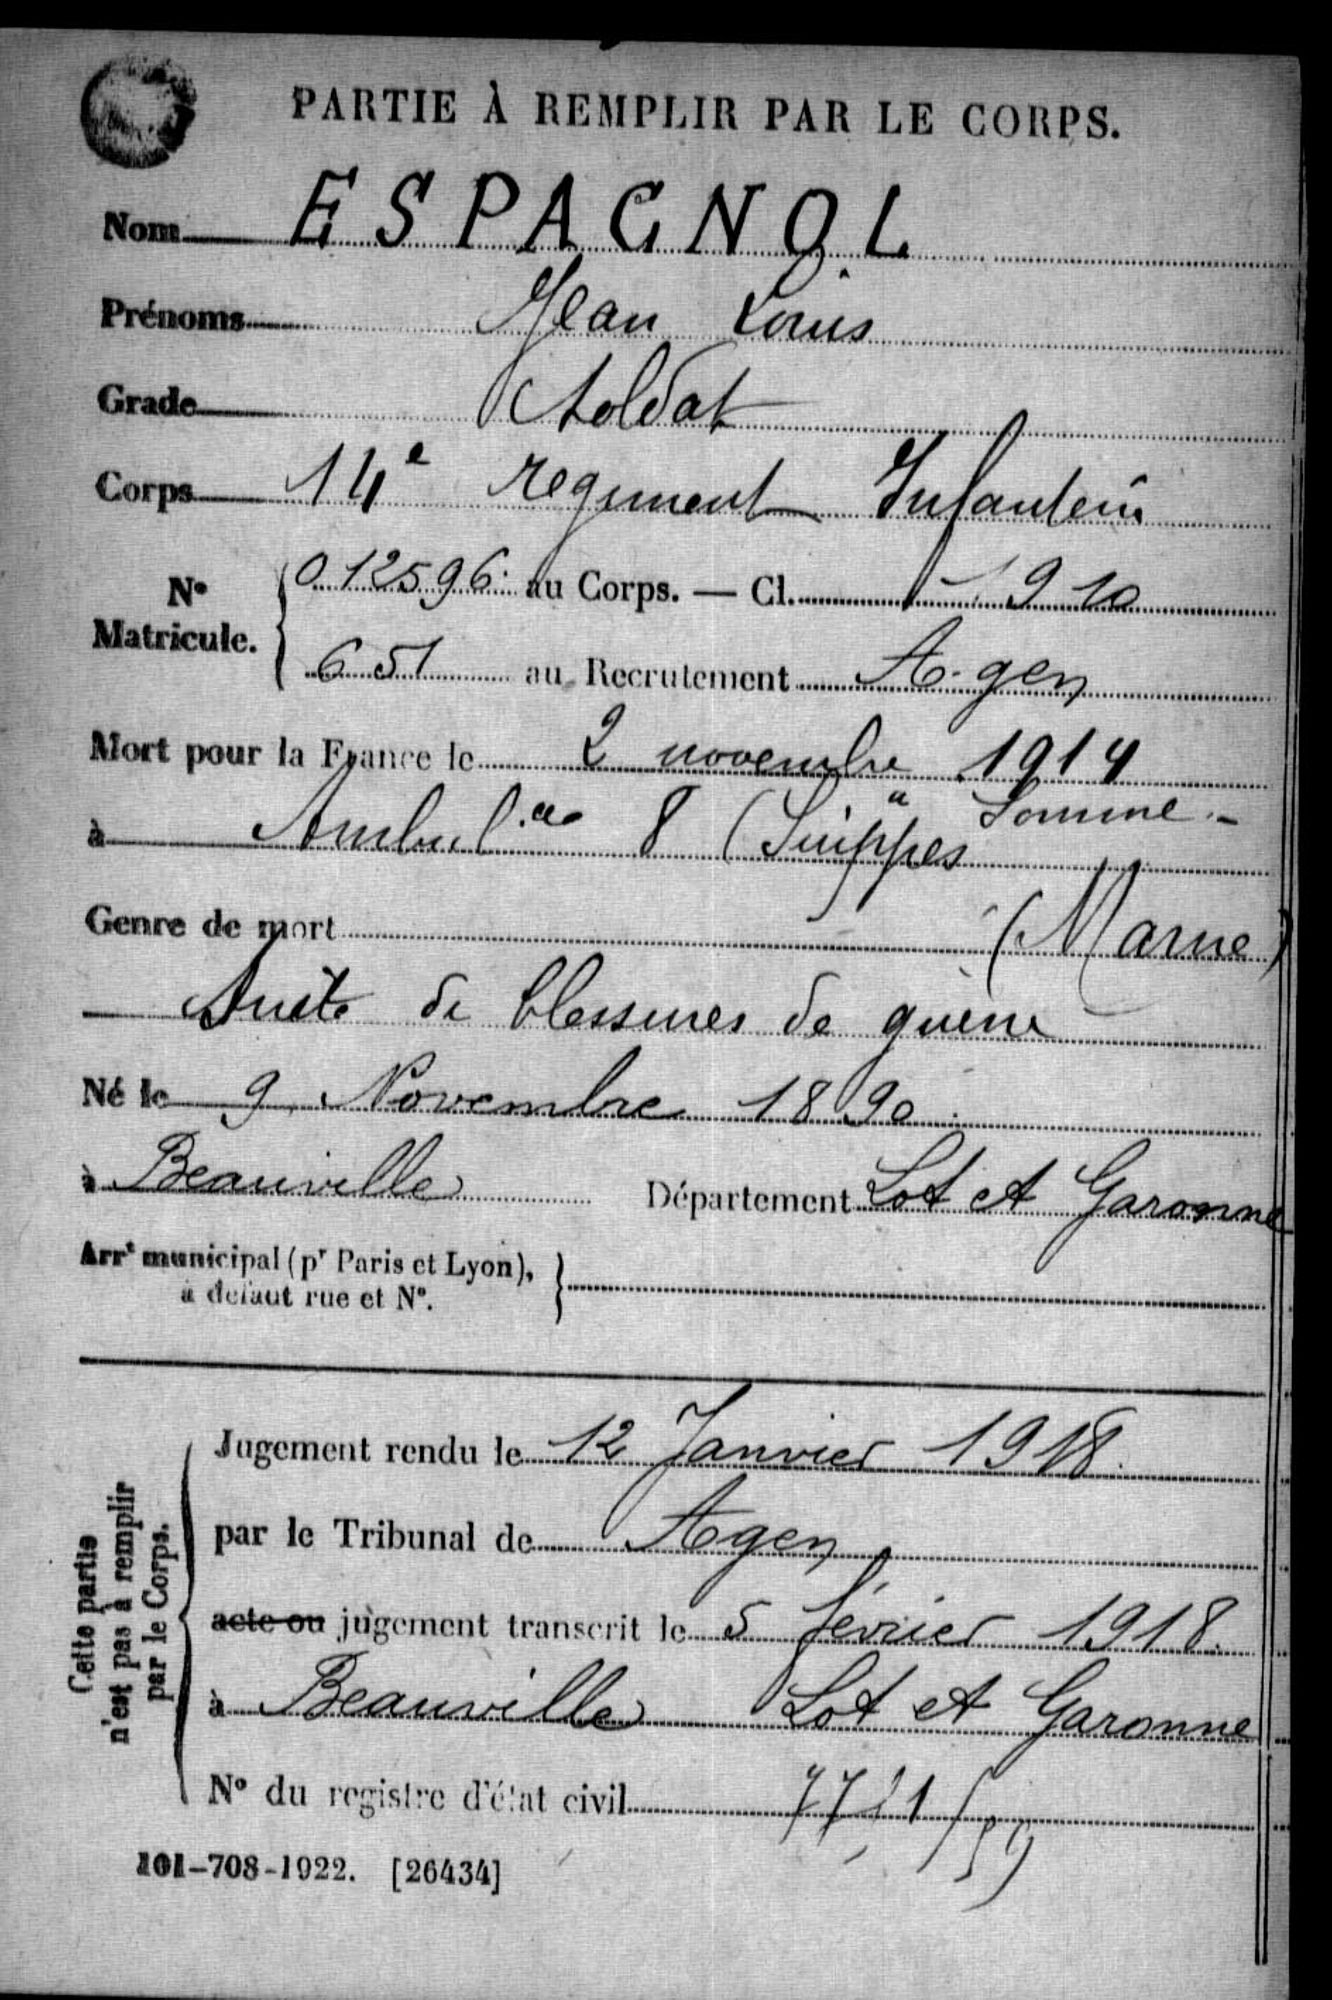 PARTIE À REMPLIR PAR LE CORPS.
Nom ESPAGNOL
Prénoms Jean Louis
Grade Soldat
Corps 14e régiment Infanterie
N° Matricule. 012596 au Corps. — Cl. 1910
651 au Recrutement Agen
Mort pour la France le 2 novembre 1914
à Ambulce 8 (Suippes Somme -
Genre de mort (Marne)
Suite de blessures de guerre
Né le 9 Novembre 1890
à Beauville Département Lot et Garonne
Arrt municipal (pr Paris et Lyon),
à défaut rue et N°.
Jugement rendu le 12 Janvier 1918.
par le Tribunal de Agen
acte ou jugement transcrit le 5 février 1918.
à Beauville Lot et Garonne
N° du registre d'état civil
Cette partie
n'est pas à remplir
par le Corps.
101-708-1922. [26434]